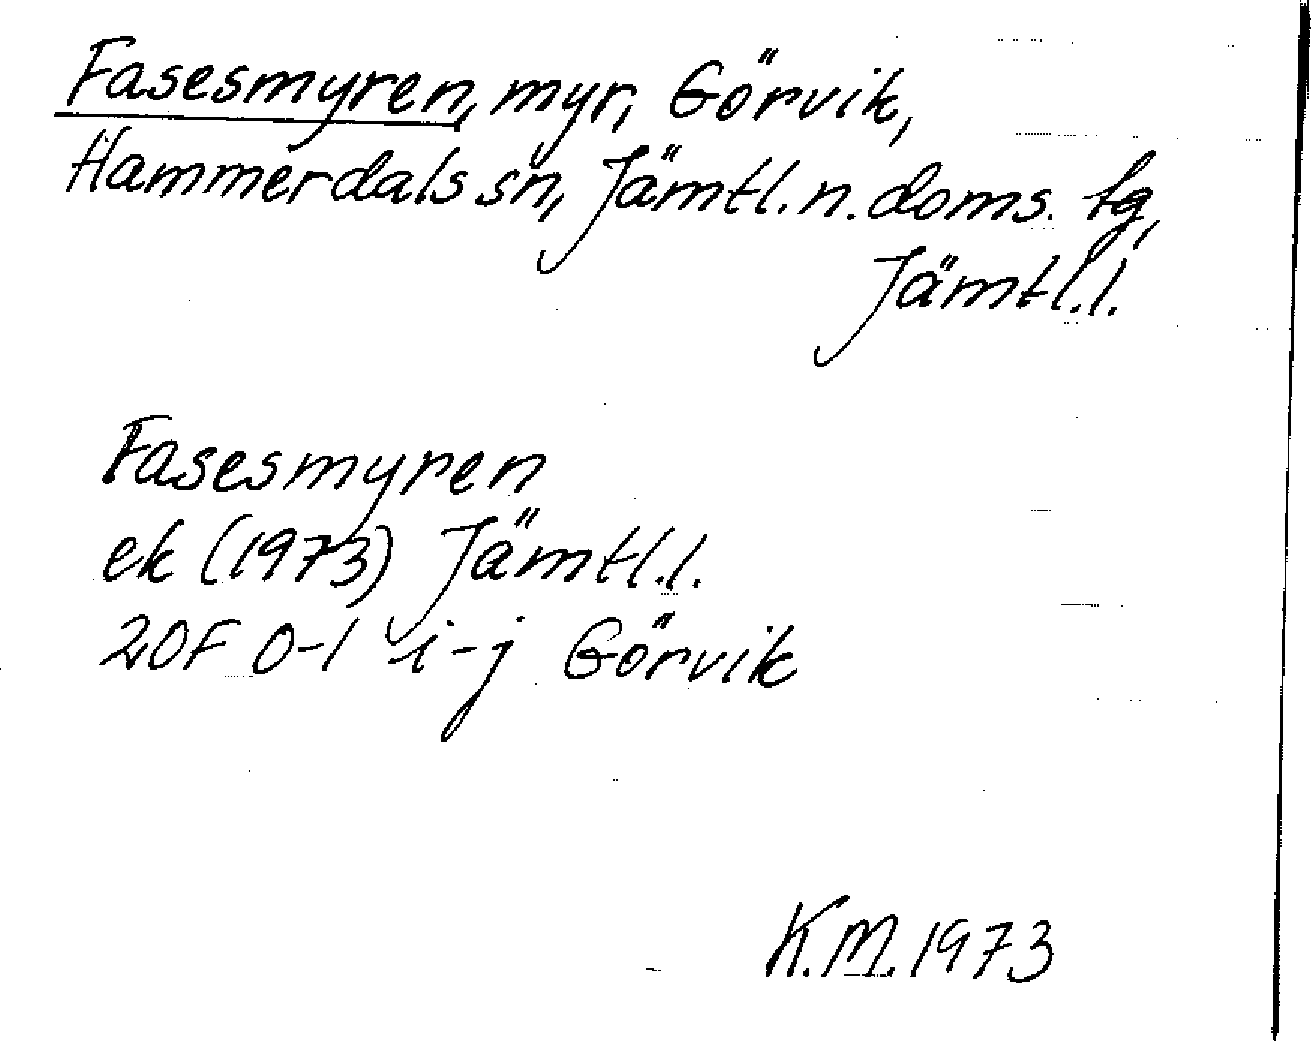 Fasesmyren, myr, Görvik,
Hammerdals sn, Jämtl. n. doms. tg,
Jämtl. l.
Fasesmyren
ek (1973) Jämtl. l.
20F 0-1 i-j Görvik
K.M. 1973